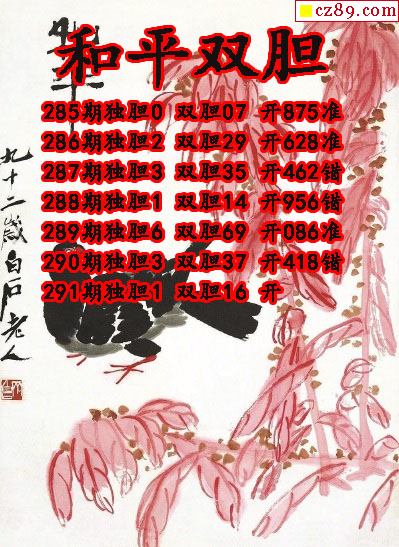 cz89.com
和平双胆
285期独胆0 双胆07 开875准
286期独胆2 双胆29 开628准
287期独胆3 双胆35 开462错
288期独胆1 双胆14 开956错
289期独胆6 双胆69 开086准
290期独胆3 双胆37 开418错
291期独胆1 双胆16 开
九十二岁白石老人